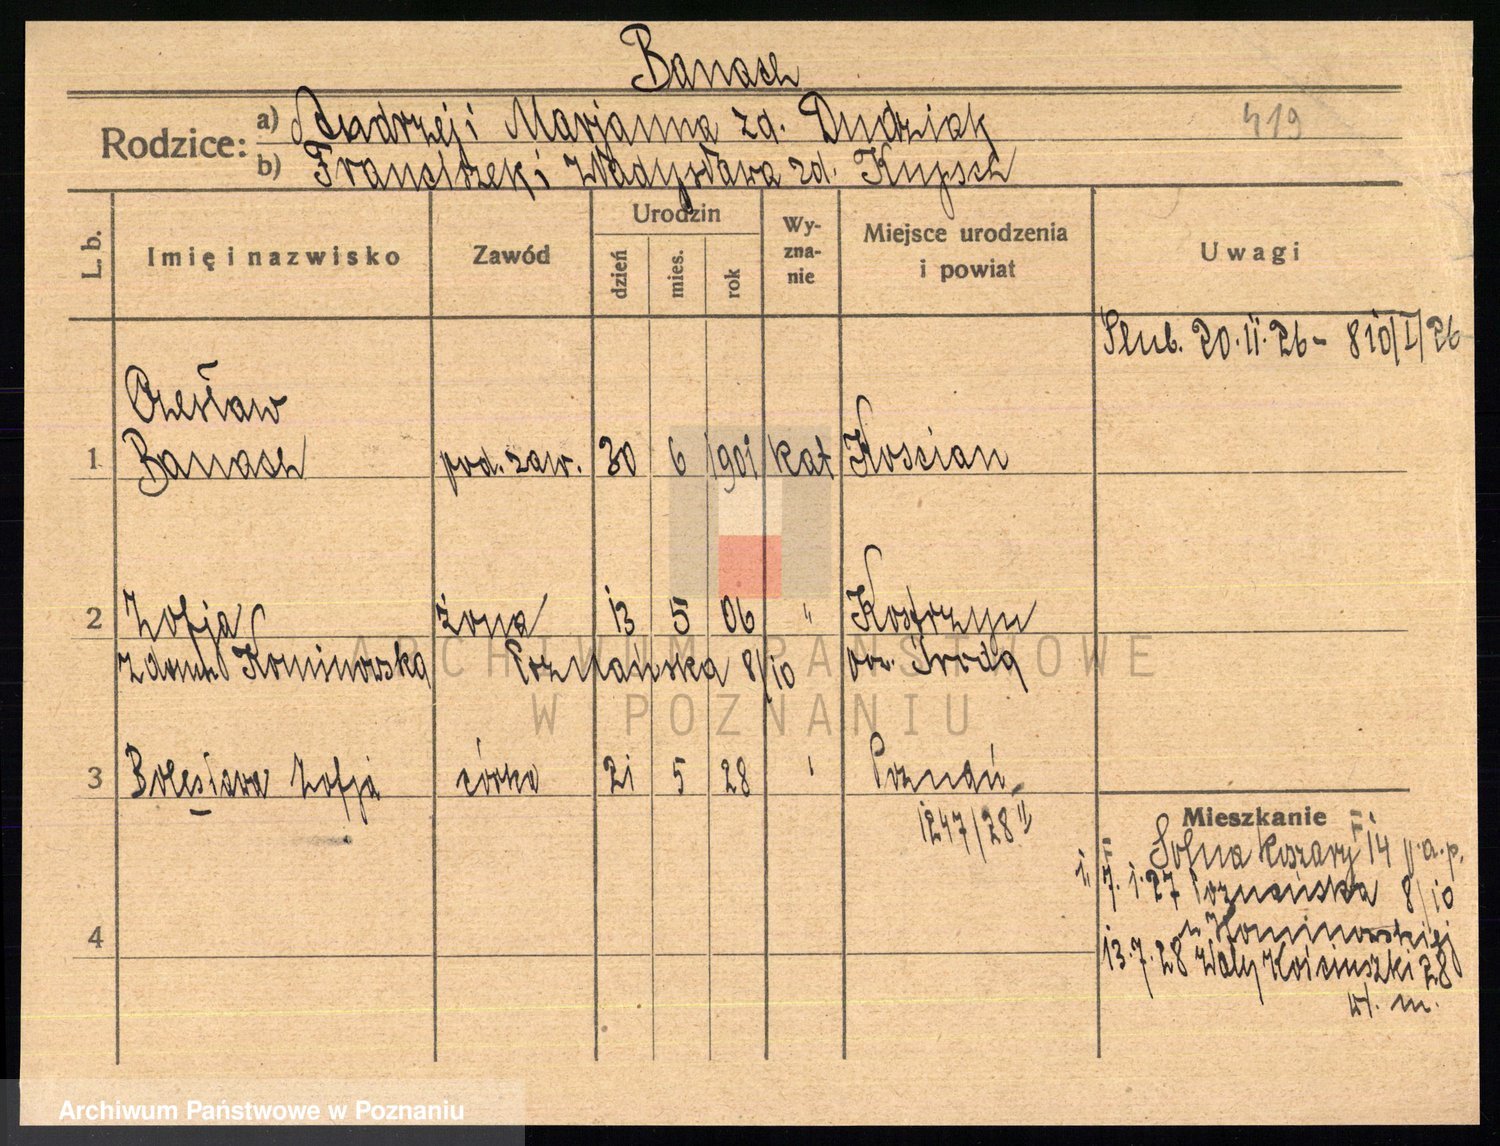 Banach
Rodzice: a) Andrzej i Marjanna zd. Dudziak
419
b) Franciszek i Władysława zd. Kupsch
L. b.
Imię i nazwisko
Zawód
Urodzin
dzień
mies.
rok
Wy-
zna-
nie
Miejsce urodzenia
i powiat
Uwagi
Ślub. 20.II.26 - 810/I/26
Czesław
1 Banach pod. zaw. 30 6 1901 kat Kościan
2 Zofja żona 13 5 06 " Kostrzyn
z domu Kominowska Poznańska 8/10 pow. Środa
3 Bolesława Zofja córka 21 5 28 " Poznań
1247/28 II
4
Mieszkanie
Solna koszary 14 p.a.p.
7.1.27 Poznańska 8/10
u Kominowskiej
13.7.28 Wały Kościuszki 28
wł. m.
ARCHIWUM PAŃSTWOWE
W POZNANIU
Archiwum Państwowe w Poznaniu